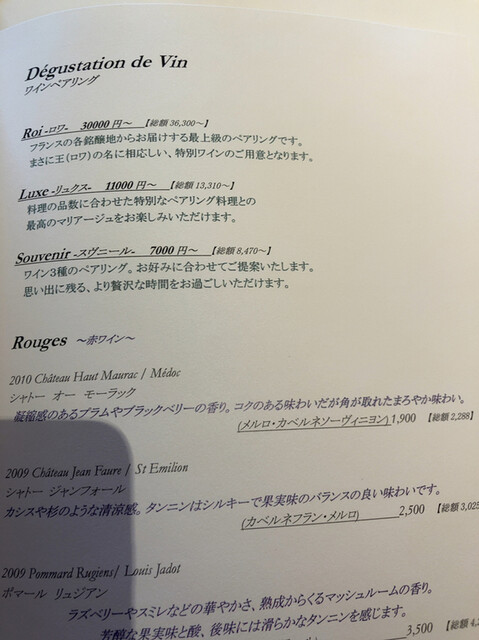 Dégustation de Vin
ワインペアリング
Roi -ロワ- 30000 円～ 【総額 36,300～】
フランスの各銘醸地からお届けする最上級のペアリングです。
まさに王(ロワ)の名に相応しい、特別ワインのご用意となります。
Luxe -リュクス- 11000 円～ 【総額 13,310～】
料理の品数に合わせた特別なペアリング料理との
最高のマリアージュをお楽しみいただけます。
Souvenir -スヴニール- 7000 円～ 【総額 8,470～】
ワイン3種のペアリング。お好みに合わせてご提案いたします。
思い出に残る、より贅沢な時間をお過ごしいただけます。
Rouges ～赤ワイン～
2010 Château Haut Maurac / Médoc
シャトー オー モーラック
凝縮感のあるプラムやブラックベリーの香り。コクのある味わいだが角が取れたまろやか味わい。
(メルロ・カベルネソーヴィニヨン) 1,900 【総額 2,288】
2009 Château Jean Faure / St Emilion
シャトー ジャンフォール
カシスや杉のような清涼感。タンニンはシルキーで果実味のバランスの良い味わいです。
(カベルネフラン・メルロ) 2,500 【総額 3,025
2009 Pommard Rugiens/ Louis Jadot
ポマール リュジアン
ラズベリーやスミレなどの華やかさ、熟成からくるマッシュルームの香り。
芳醇な果実味と酸、後味には滑らかなタンニンを感じます。
3,500 【総額 4,2